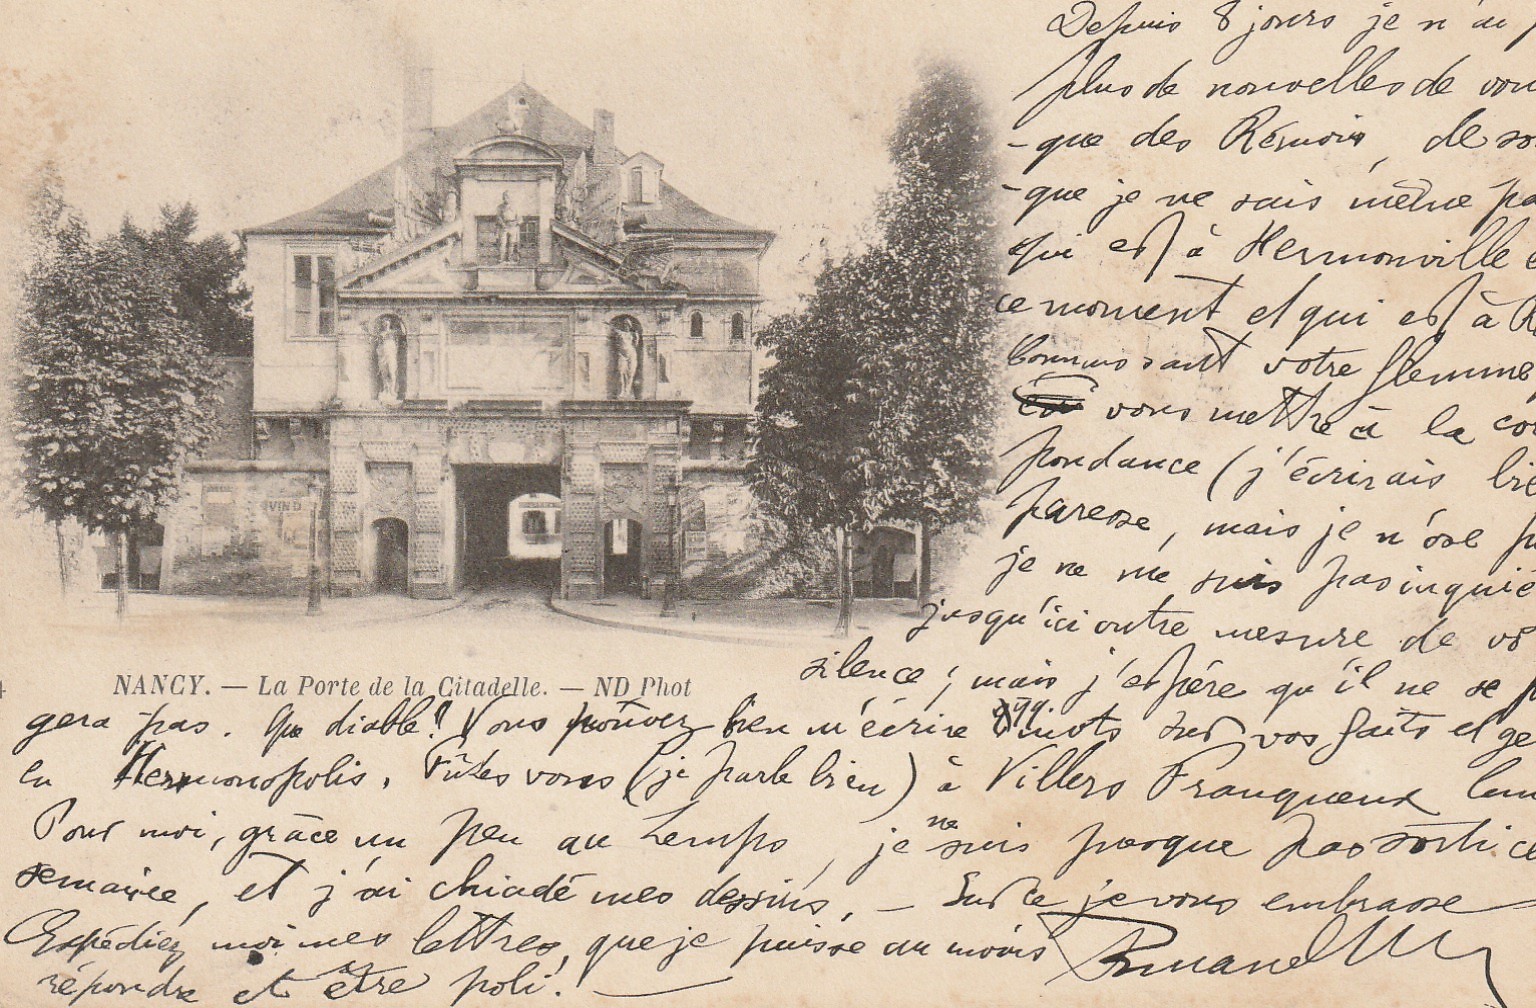 Depuis 8 jours je n'ai p
plus de nouvelles de vou
-que des Rémois, de so
-que je ne sais même pa
qui est à Hermonville e
ce moment et qui est à R
Connaissant votre flemme
vous mettre à la cor
pondance (j'écrirais bie
paresse, mais je n'ose p
je ne me suis pas inquié
jusqu'ici outre mesure de vo
silence ; mais j'espère qu'il ne se p
VIND
4 NANCY. — La Porte de la Citadelle. — ND Phot
gera pas. Que diable! Vous pouvez bien m'écrire qqq. mots sur vos faits et ge
en Hermonopolis. Fûtes vous (je parle bien) à Villers Franqueux lun
Pour moi, grâce un peu au temps, je ne suis presque pas sorti ce
semaine, et j'ai chiadé mes dessins. — Sur ce je vous embrasse
Expédiez moi mes lettres, que je puisse au moins
répondre et être poli! —